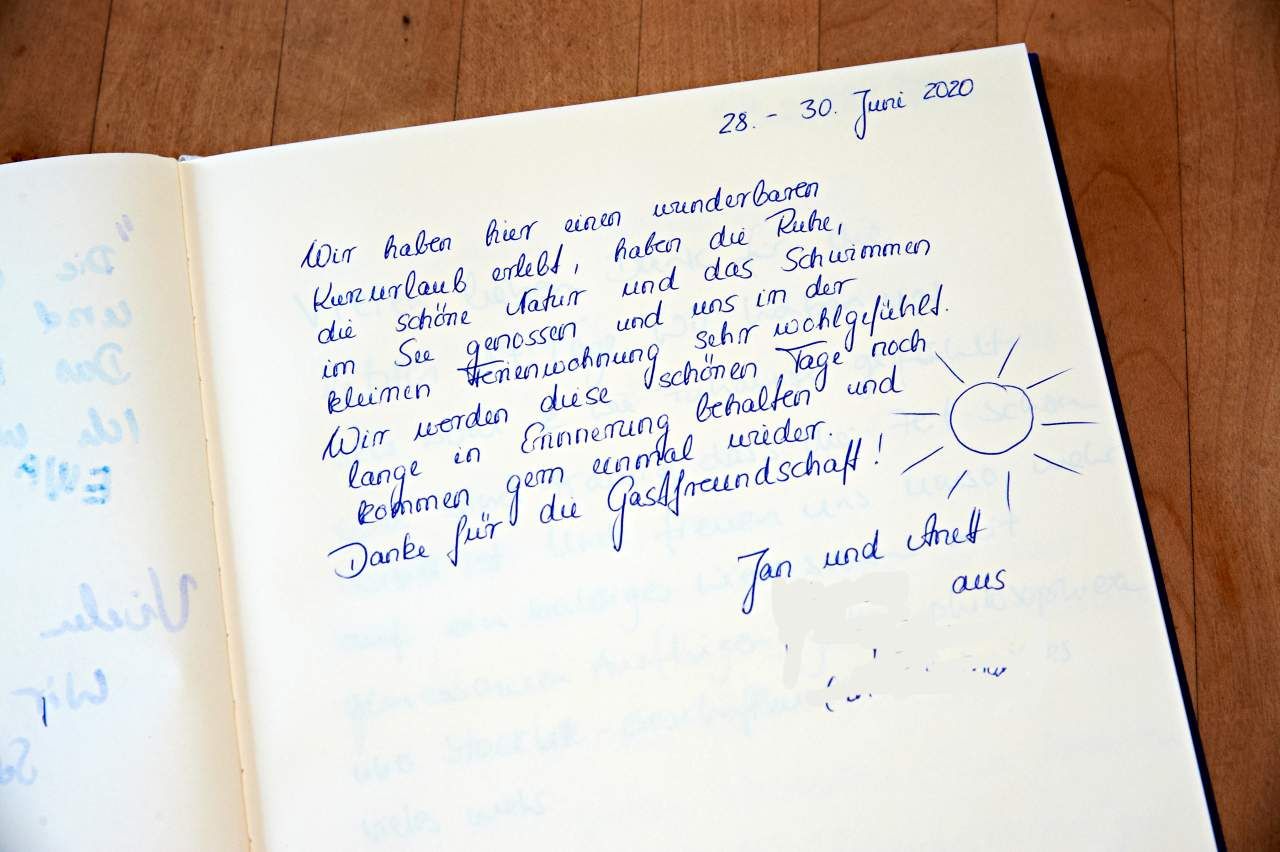 28. - 30. Juni 2020
Wir haben hier einen wunderbaren
Kurzurlaub erlebt, haben die Ruhe,
die schöne Natur und das Schwimmen
im See genossen und uns in der
kleinen Ferienwohnung sehr wohlgefühlt.
Wir werden diese schönen Tage noch
lange in Erinnerung behalten und
kommen gern einmal wider.
Danke für die Gastfreundschaft!
Jan und Anett
aus
"Die
und
Das
Ich
Vielen
Wir